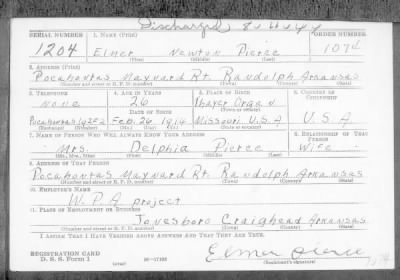 Discharged 8-4-44
SERIAL NUMBER 1. NAME (Print) ORDER NUMBER
1204 Elmer Newton Pierce 1074
(First) (Middle) (Last)
2. ADDRESS (Print)
Pocahontas Maynard Rt. Randolph Arkansas
(Number and street or R. F. D. number) (Town) (County) (State)
3. TELEPHONE 4. AGE IN YEARS 5. PLACE OF BIRTH 6. COUNTRY OF CITIZENSHIP
none 26 Thayer Oregon
DATE OF BIRTH (Town or county)
Pocahontas Feb. 26 1914 Missouri U.S.A U.S.A
(Exchange) (Number) (Mo.) (Day) (Yr.) (State or country)
7. NAME OF PERSON WHO WILL ALWAYS KNOW YOUR ADDRESS 8. RELATIONSHIP OF THAT PERSON
Mrs. Delphia Pierce Wife
(Mr., Mrs., Miss) (First) (Middle) (Last)
9. ADDRESS OF THAT PERSON
Pocahontas Maynard Rt. Randolph Arkansas
(Number and street or R. F. D. number) (Town) (County) (State)
10. EMPLOYER'S NAME
W.P.A project
11. PLACE OF EMPLOYMENT OR BUSINESS
Jonesboro Craighead Arkansas
(Number and street or R. F. D. number) (Town) (County) (State)
I AFFIRM THAT I HAVE VERIFIED ABOVE ANSWERS AND THAT THEY ARE TRUE.
REGISTRATION CARD
D. S. S. Form 1 (over) 16-17105 Elmer Pierce
(Registrant's signature)